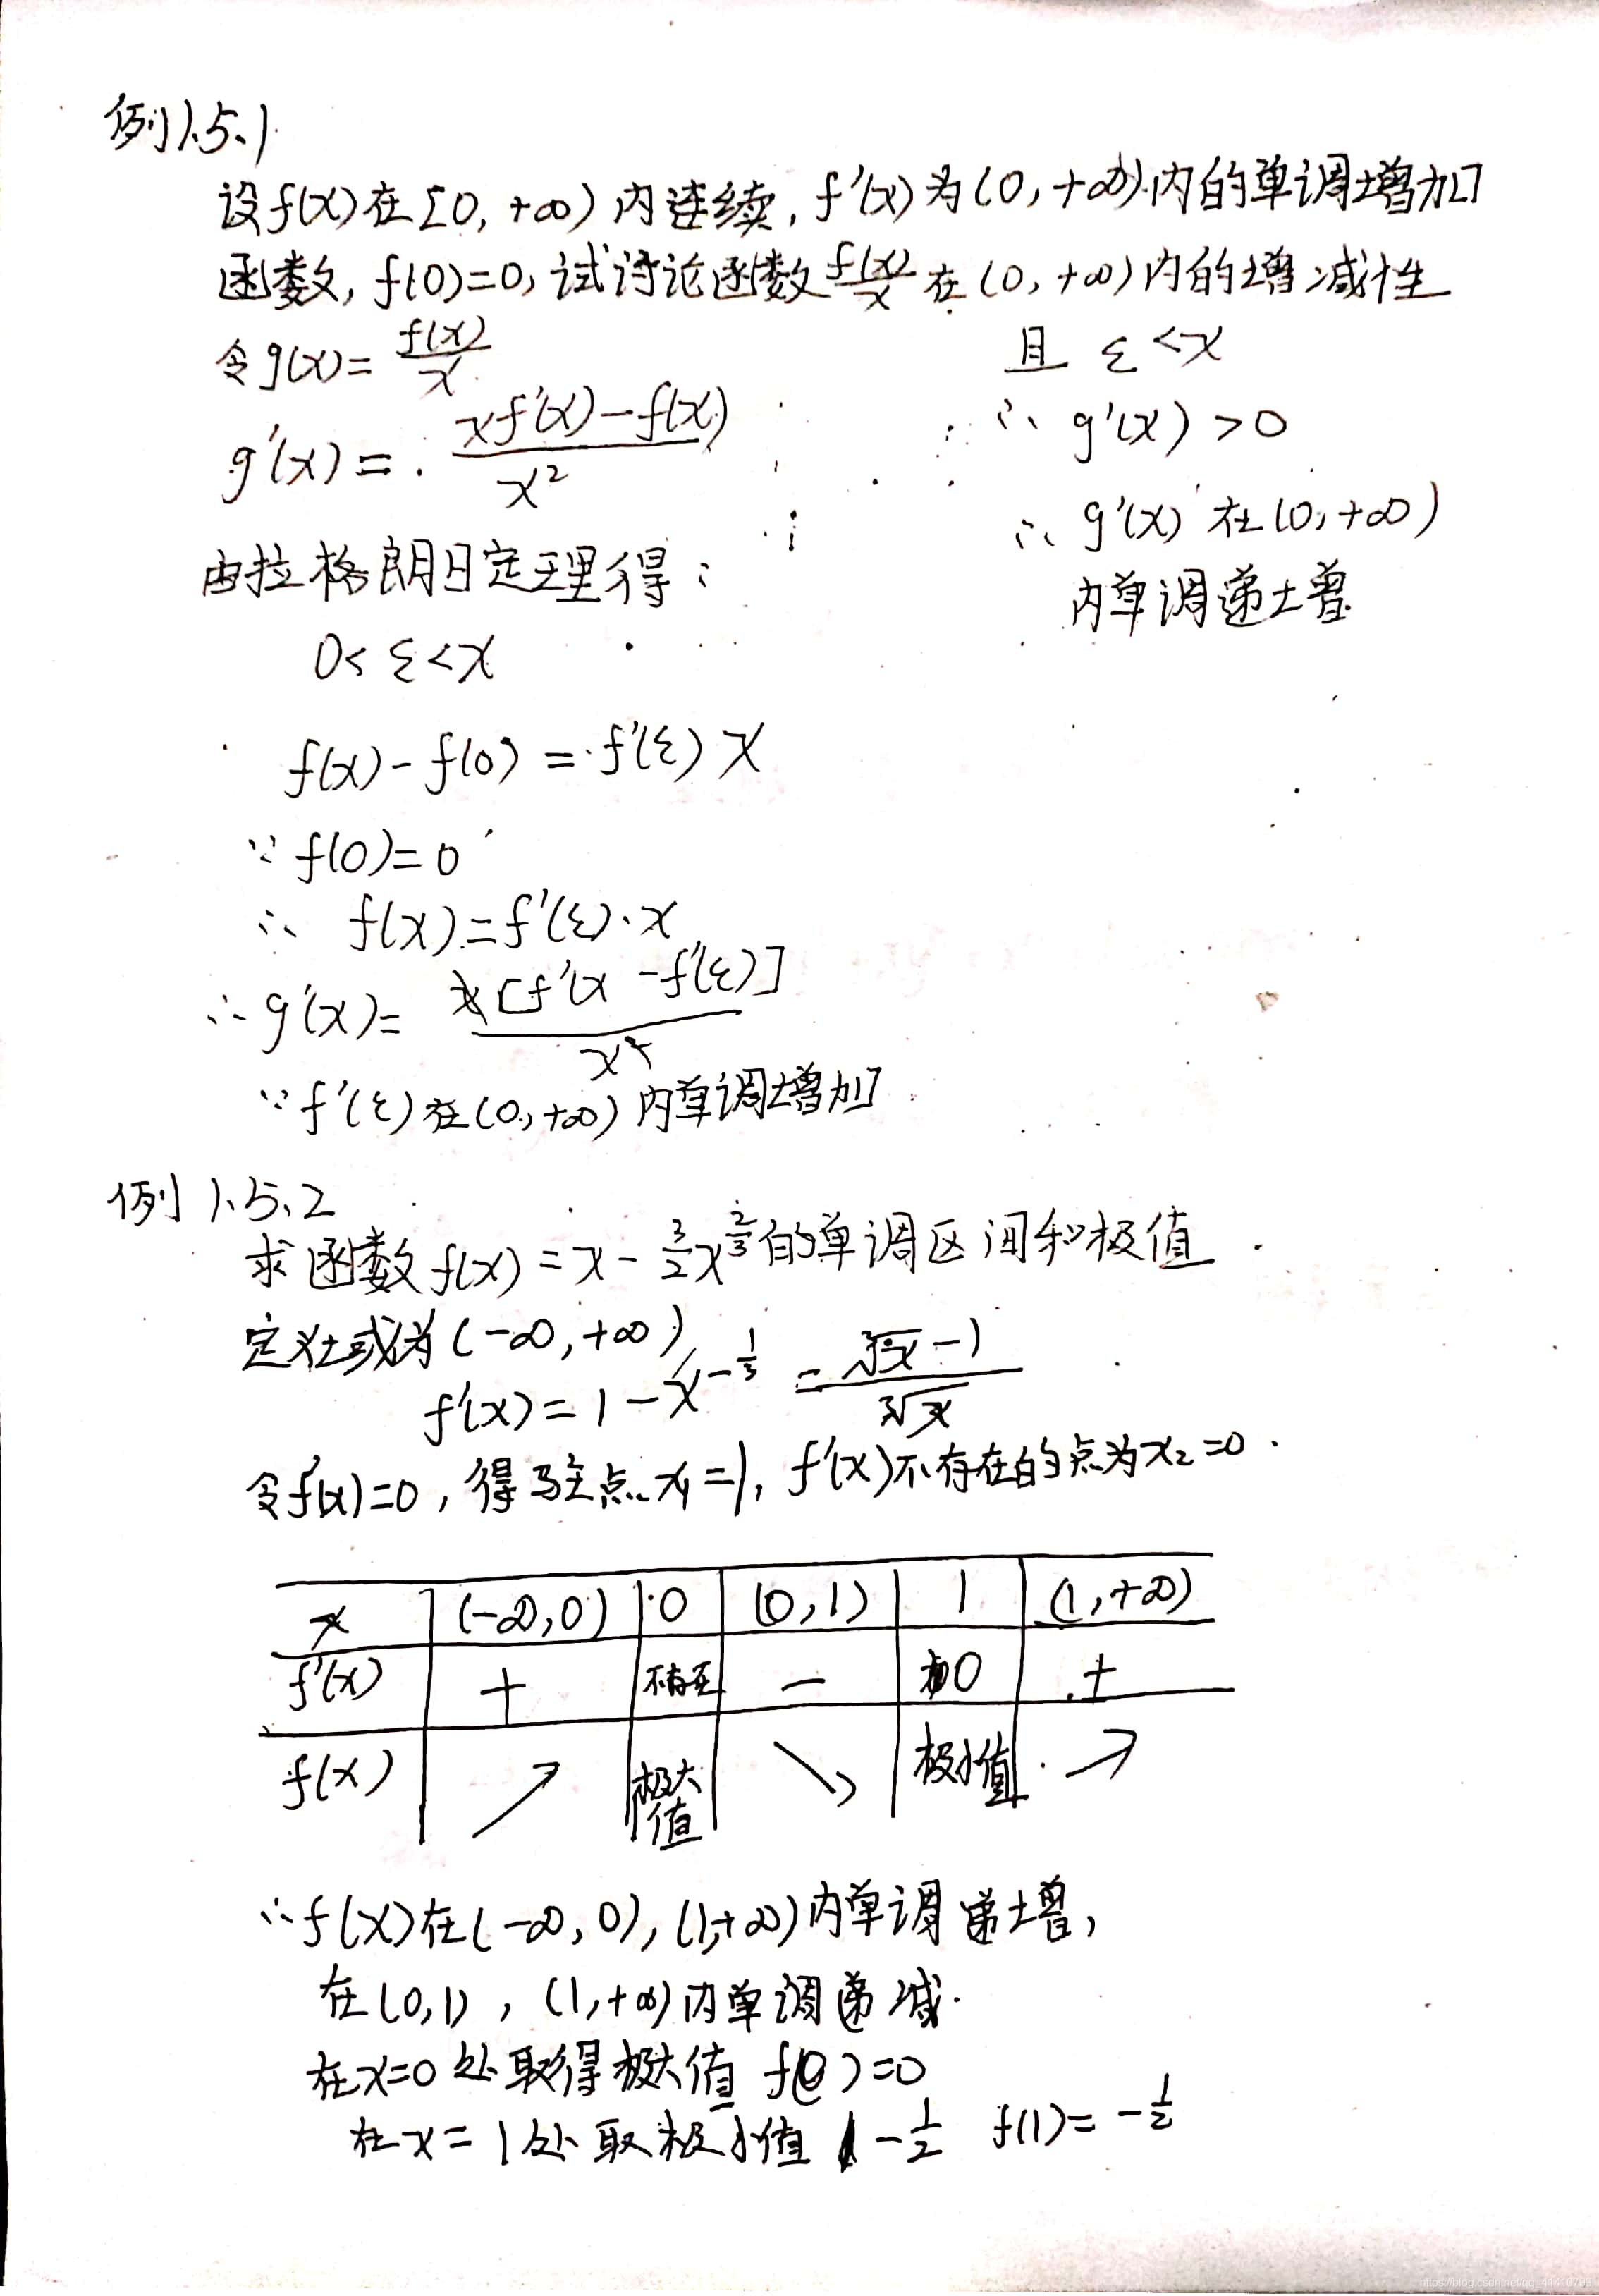 例1.5.1
设f(x)在[0,+∞)内连续,f'(x)为(0,+∞)内的单调增加
函数,f(0)=0,试讨论函数f(x)/x在(0,+∞)内的增减性
令g(x)=f(x)/x
g'(x)=(xf'(x)-f(x))/x²
由拉格朗日定理得:
0<ε<x
f(x)-f(0)=f'(ε)x
∵f(0)=0
∴ f(x)=f'(ε)·x
∴g'(x)=x[f'(x-f'(ε)]/x²
∵f'(ε)在(0,+∞)内单调增加
且 ε<x
∴ g'(x)>0
∴ g'(x)在(0,+∞)
内单调递增
例1.5.2
求函数f(x)=x-3/2x^(2/3)的单调区间和极值
定义域为(-∞,+∞)
f'(x)=1-x^(-1/3)=(∛x-1)/∛x
令f'(x)=0,得驻点x₁=1,f'(x)不存在的点为x₂=0.
x (-∞,0) 0 (0,1) 1 (1,+∞)
f'(x) + 不存在 - 0 +
f(x) ↗ 极大值 ↘ 极小值 ↗
∴f(x)在(-∞,0),(1,+∞)内单调递增,
在(0,1),(1,+∞)内单调递减.
在x=0处取得极大值 f(0)=0
在x=1处取极小值 -1/2 f(1)=-1/2